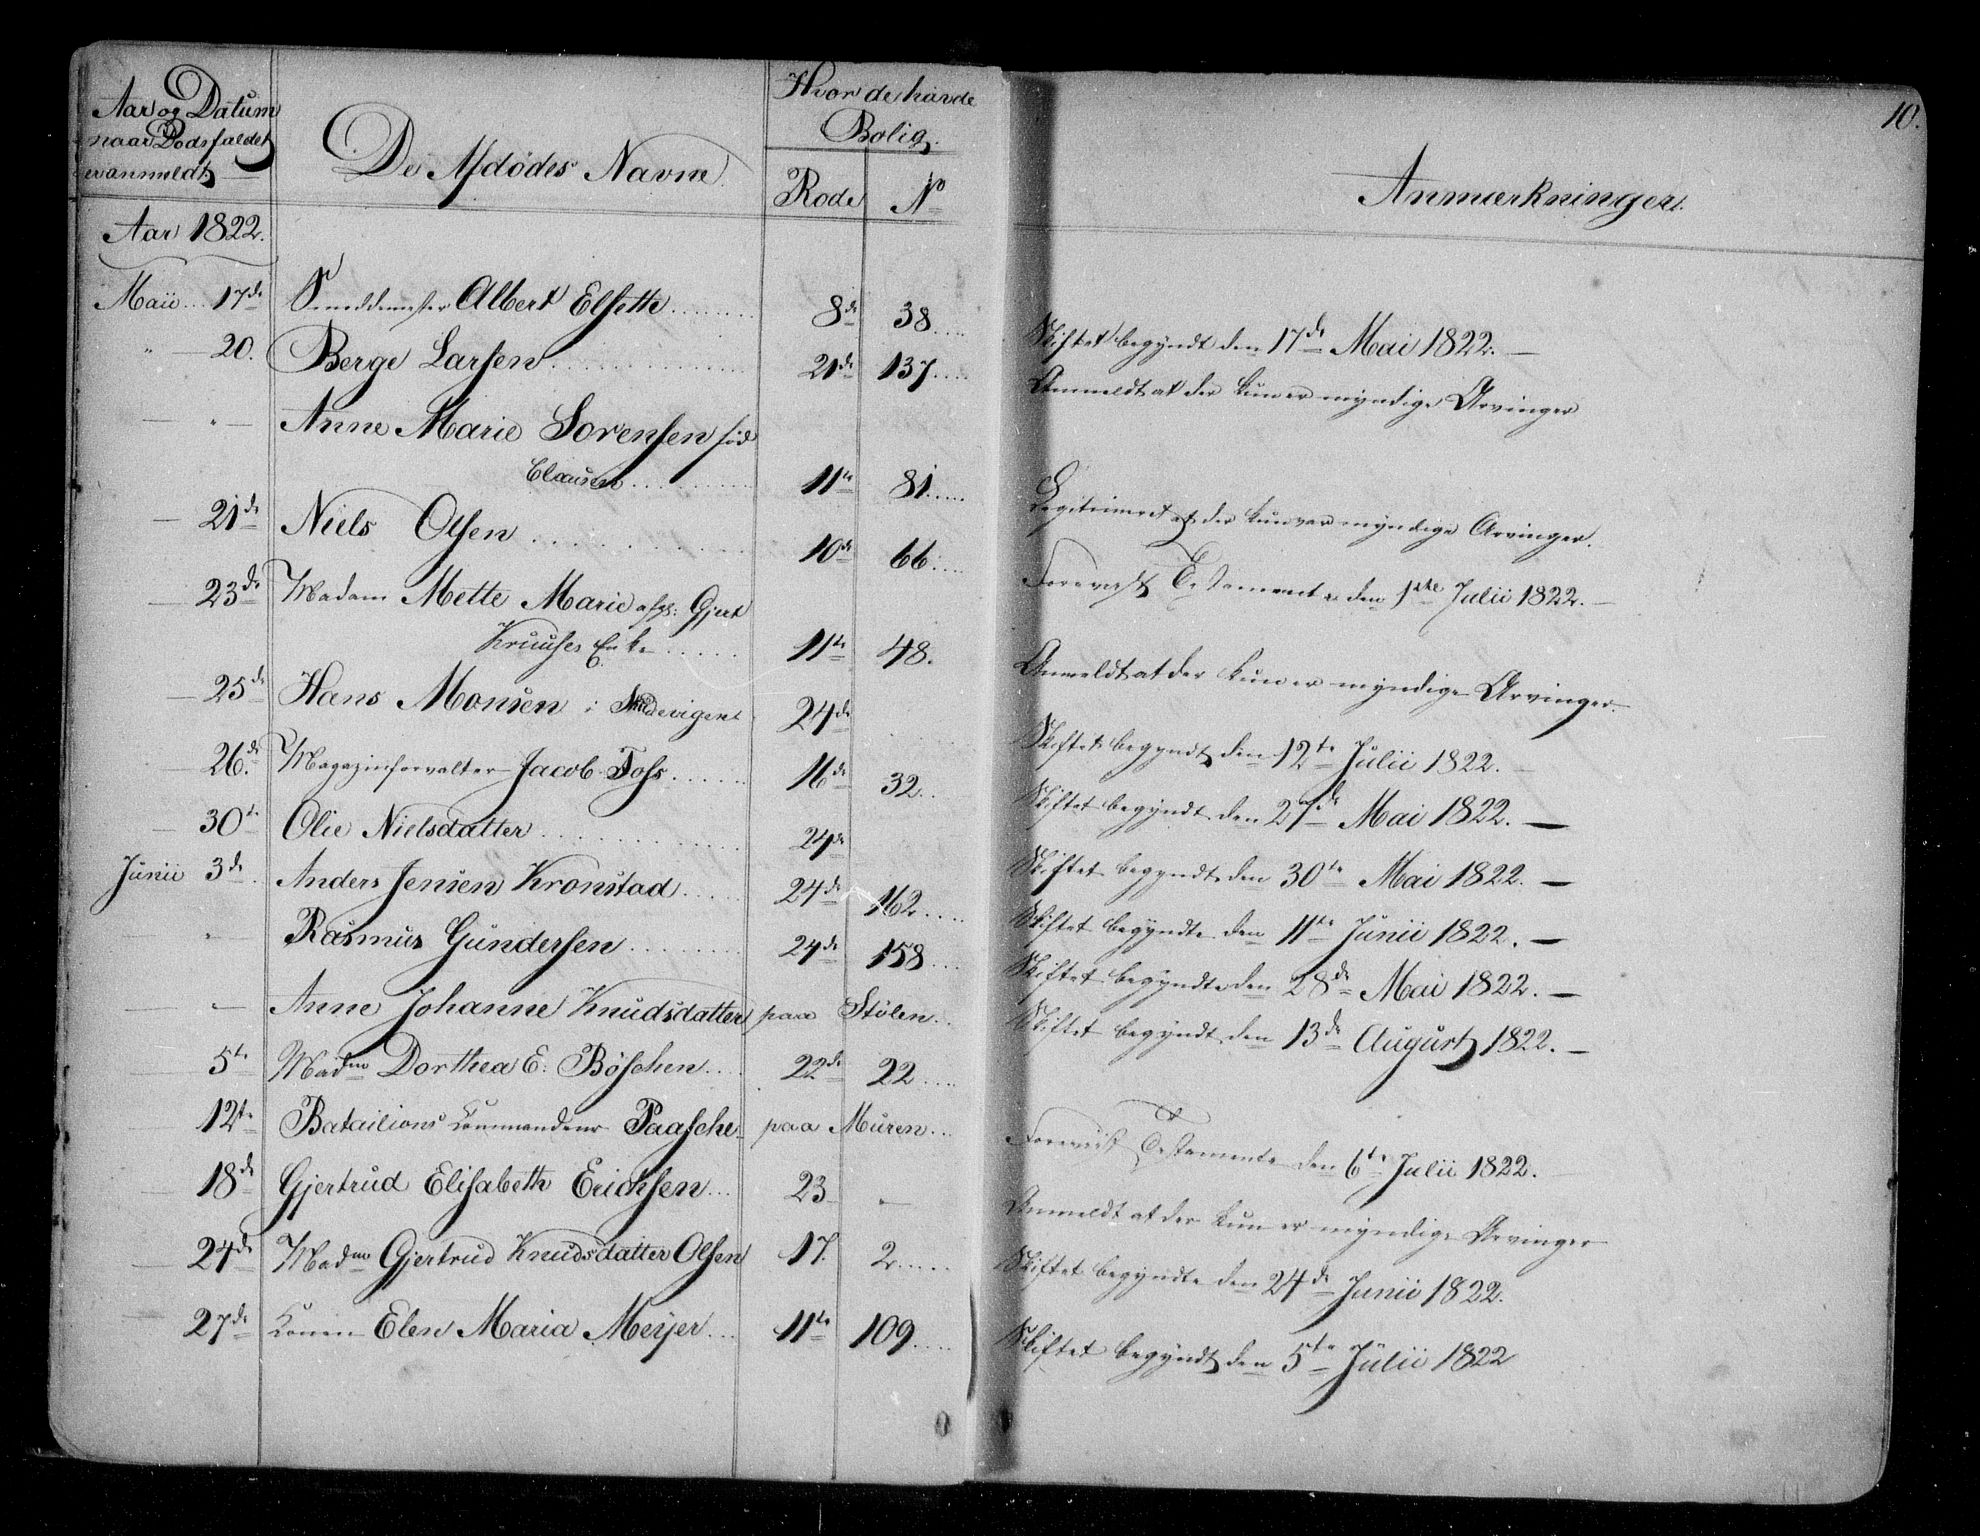 10.
Aar og Datum
naar Dödsfaldet
er anmeldt
De Afdödes Navne.
Hvor de havde
Bolig.
Rode No
Anmærkninger.
Aar 1822.
Maii 17de Smeddemester Albert Elsette 8de 38 Skiftet begyndt den 17de Mai 1822. —
" — 20. Berge Larsen 21de 137 Anmeldt at der kun er myndige Arvinger
— " — Anne Marie Sorensen föd
Clausen 11te 81 Legitimeret at der kun var myndige Arvinger.
— 21de Niels Olsen 10de 66 Foreviist Testamente den 1ste Julii 1822. —
— 23de Madam Mette Marie afg: Gjert
Kruuses Enke 11te 48. Anmeldt at der kun er myndige Arvinger.
— 25de Hans Monsen i Skudevigen 24de Skiftet begyndt den 12te Julii 1822. —
— 26de Magazinforvalter Jacob Foss 16de 32 Skiftet begyndt den 27de Mai 1822. —
— 30te Olie Nielsdatter 24de Skiftet begyndt den 30te Mai 1822. —
Junii 3de Anders Jensen Kronstad 24de 162 Skiftet begyndte den 11te Junii 1822. —
" — Rasmus Gundersen 24de 158 Skiftet begyndte den 28de Mai 1822. —
— Anne Johanne Knudsdatter paa Stølen Skiftet begyndt den 13de August 1822. —
— 5te Madm Dorthea E. Bøschen 22de 22
— 12te Batailions Commandeur Paasche paa Muren Foreviist Testamente den 6te Julii 1822.
— 18de Gjertrud Elisabeth Erichsen 23 — Anmeldt at der kun er myndige Arvinger
— 24de Madm Gjertrud Knudsdatter Olsen 17. 2 Skiftet begyndte den 24de Junii 1822.
— 27de Konen Elen Maria Meyer 11te 109 Skiftet begyndt den 5te Julii 1822